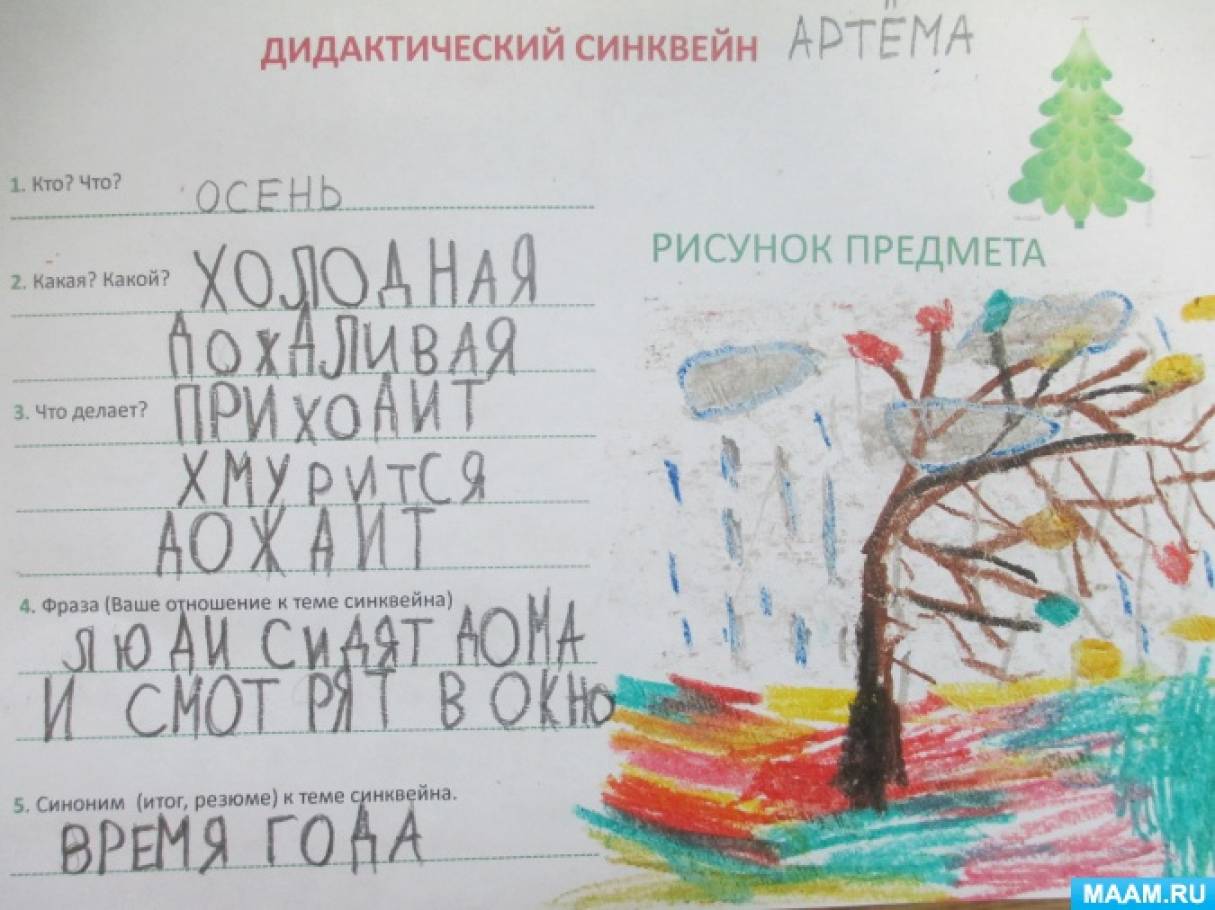 ДИДАКТИЧЕСКИЙ СИНКВЕЙН АРТЁМА
1. Кто? Что? ОСЕНЬ
2. Какая? Какой? ХОЛОДНАЯ
ДОХДЛИВАЯ
3. Что делает? ПРИХОДИТ
ХМУРИТСЯ
ДОЖДИТ
4. Фраза (Ваше отношение к теме синквейна)
ЛЮДИ СИДЯТ ДОМА
И СМОТРЯТ В ОКНО
5. Синоним (итог, резюме) к теме синквейна.
ВРЕМЯ ГОДА
РИСУНОК ПРЕДМЕТА
MAAM.RU